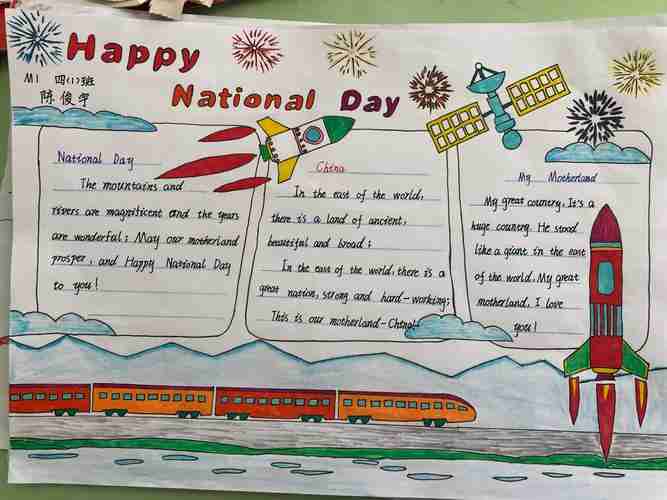 Happy
National Day
M1 四(1)班
陈俊宇
National Day
The mountains and
rivers are magnificent and the years
are wonderful; May our motherland
prosper, and Happy National Day
to you!
China
In the east of the world,
there is a land of ancient,
beautiful and broad;
In the east of the world, there is a
great nation, strong and hard-working;
This is our motherland-China!
My Motherland
My great country, It's a
huge country. He stood
like a giant in the east
of the world. My great
motherland, I love
you!